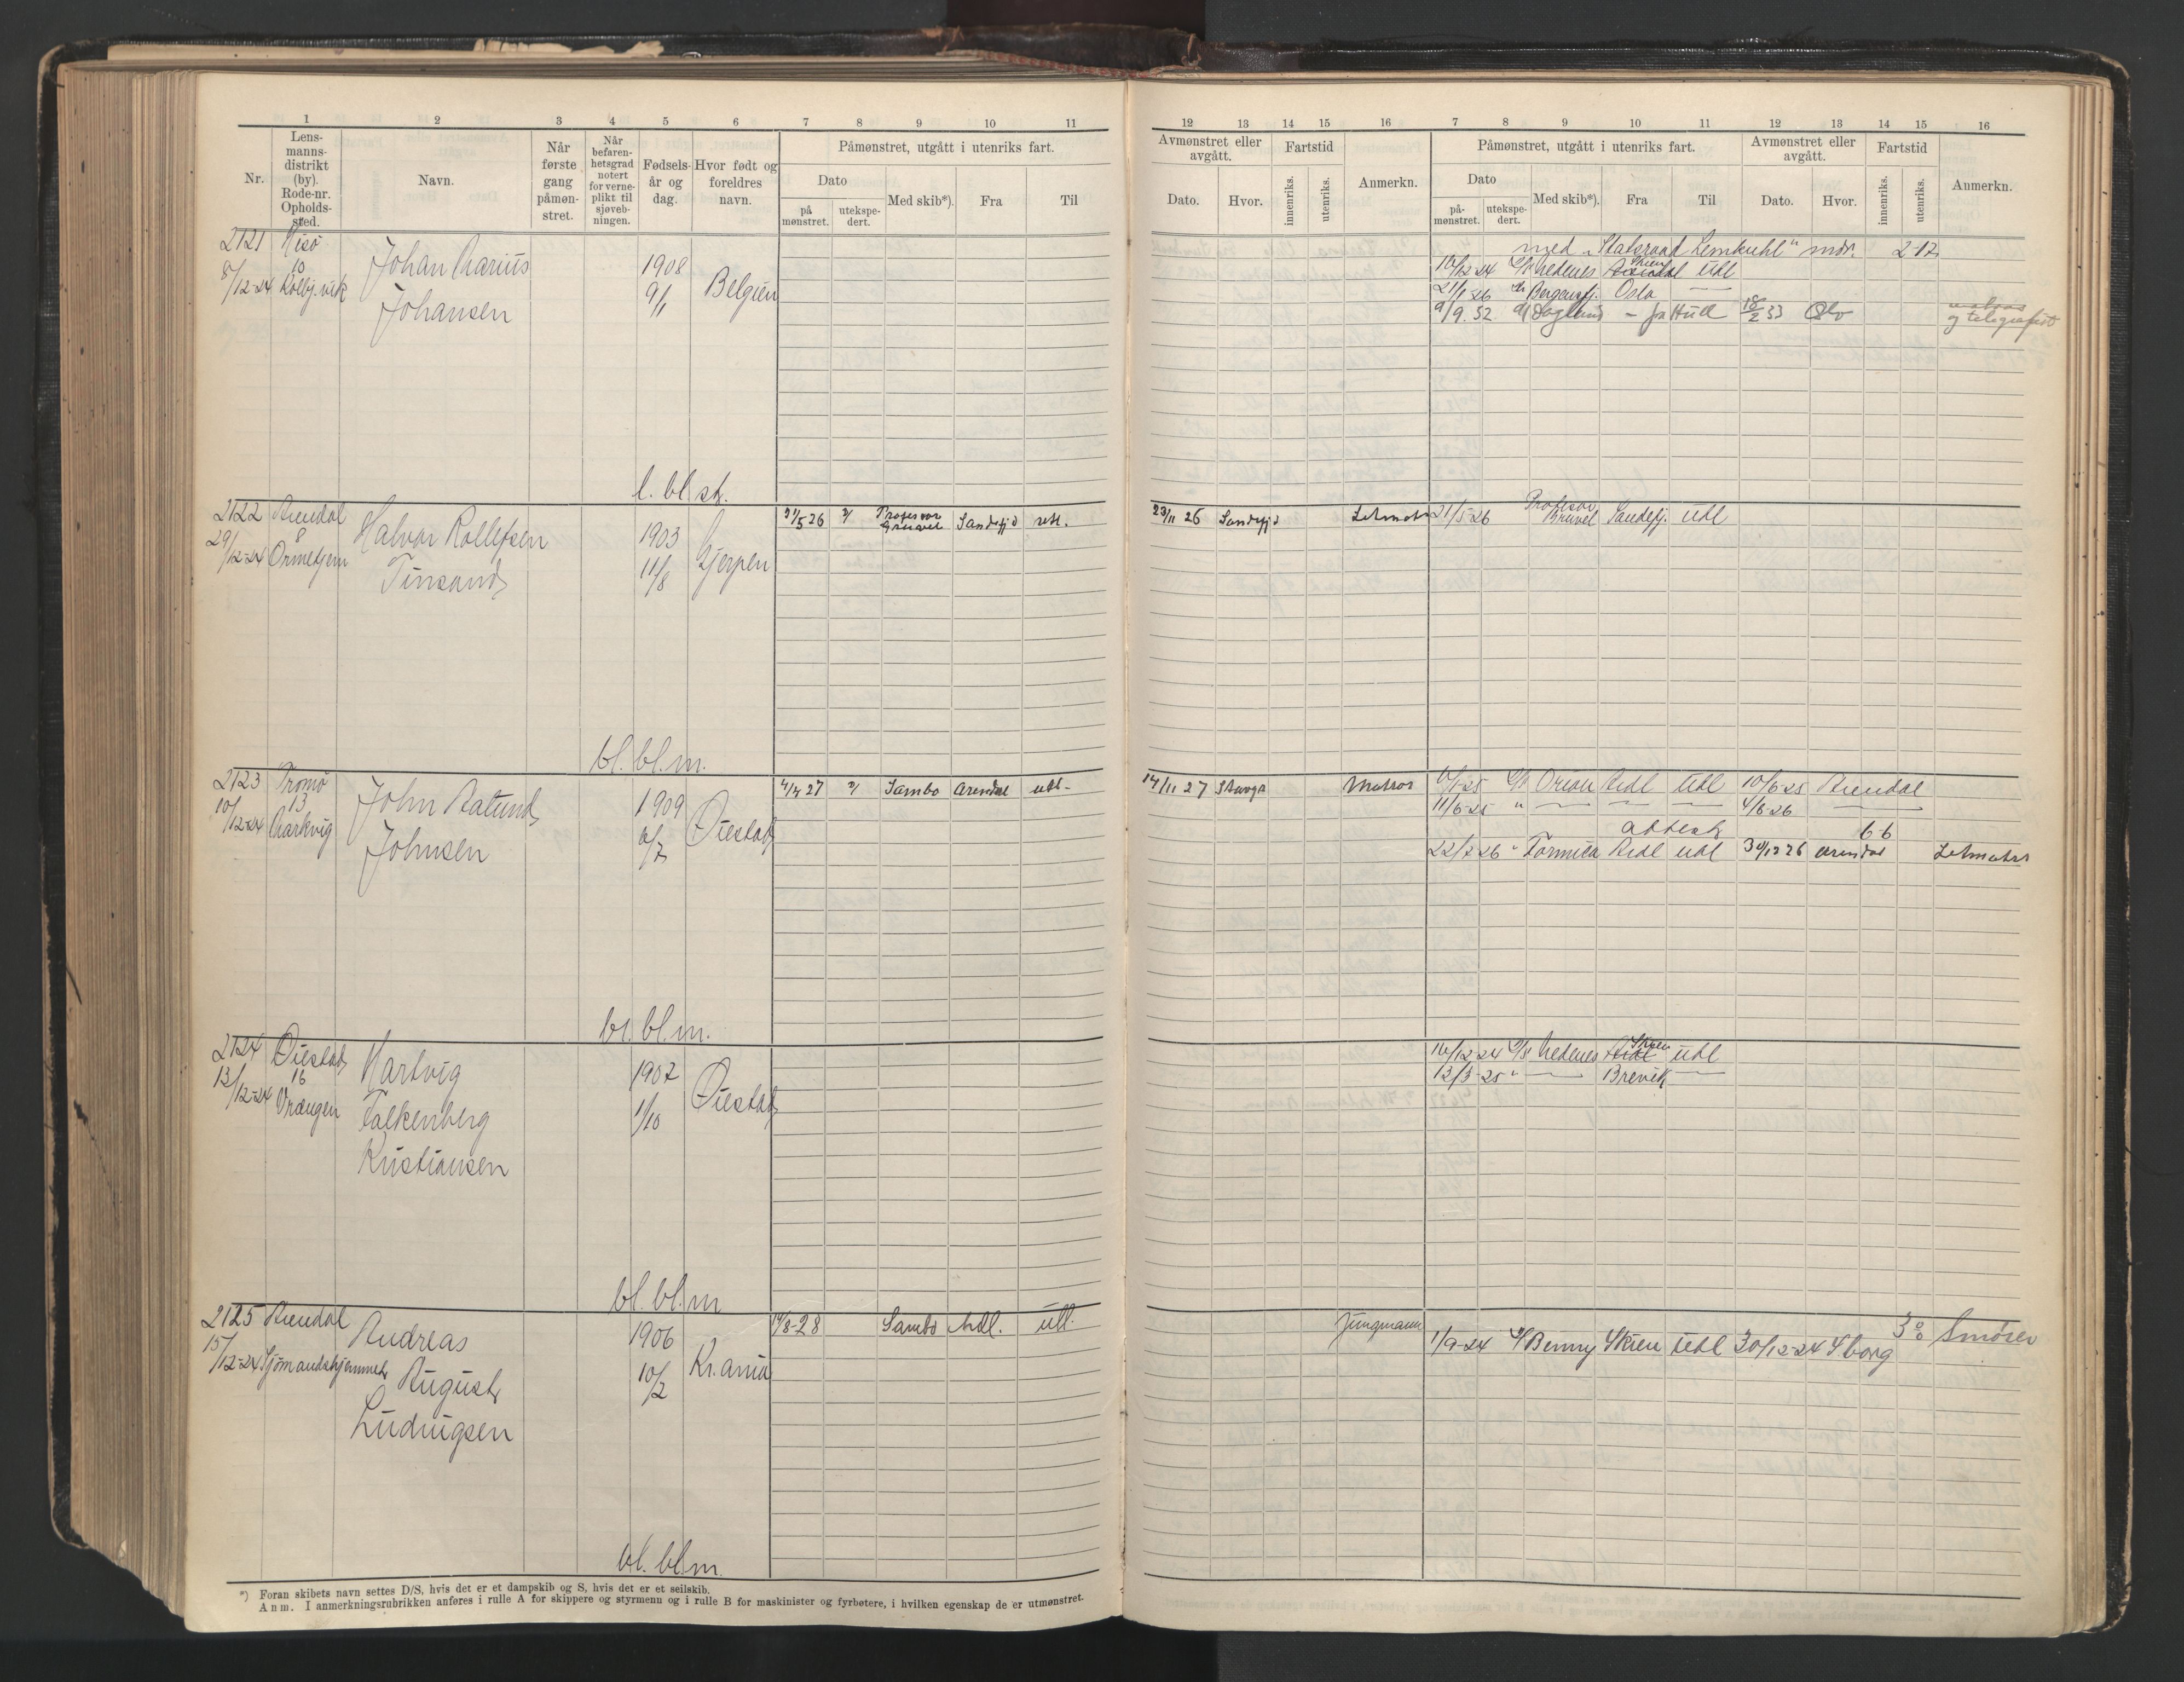 1 2 3 4 5 6 7 8 9 10 11
Nr.
Lens-
manns-
distrikt
(by).
Rode-nr.
Opholds-
sted.
Navn.
Når
første
gang
påmøn-
stret.
Når
befaren-
hetsgrad
notert
for verne-
plikt til
sjøveb-
ningen.
Fødsels-
år og
dag.
Hvor født og
foreldres
navn.
Påmønstret, utgått i utenriks fart.
Dato
på
mønstret.
utekspe-
dert.
Med skib*).
Fra
Til
2121 Hisø
8/12-24 10
Kolbj.vik
Johan Marius
Johansen
1908
9/1
Belgien
l. bl. st.
2122 Arendal
29/12-24 8
Halvor Rollefsen
Tinsand
1903
11/8
Gjerpen
31/5 26 Professor Gruvel Sandefjd utl.
bl. bl. m.
2123 Tromø
10/12-24 13
Markvig
John Aalund
Johnsen
1909
6/7
Øiestad
4/4 27 Sambo Arendal utl.
bl. bl. m.
2124 Øiestad
13/12-24 16
Vrængen
Hartvig
Falkenberg
Kristiansen
1907
1/10
Øiestad
bl. bl. m
2125 Arendal
15/12-24 Sjømandshjemmet
Andreas
August
Ludvigsen
1906
10/2
Kr.ania
14/8-28 Sambo Ardl. utl.
bl. bl. m.
*) Foran skibets navn settes D/S, hvis det er et dampskib og S, hvis det er et seilskib.
Anm. I anmerkningsrubrikken anføres i rulle A for skippere og styrmenn og i rulle B for maskinister og fyrbøtere, i hvilken egenskap de er utmønstret.
12 13 14 15 16 7 8 9 10 11 12 13 14 15 16
Avmønstret eller
avgått.
Fartstid
Dato.
Hvor.
innenriks.
utenriks.
Anmerkn.
Påmønstret, utgått i utenriks fart.
Dato
på-
mønstret.
utekspe-
dert.
Med skib*).
Fra
Til
Avmønstret eller
avgått.
Fartstid
Dato.
Hvor.
innenriks.
utenriks.
Anmerkn.
med „Statsraad Lemkuhl" mdr. 2-17
16/12-24 Nedenes Arendal Skien utl
21/1-26 Bergensfj. Oslo —
9/9. 32 – fra Hull 18/2 33 Oslo og telegrafist
23/11 26 Sandefjd Letmatr 21/5-26 Profesor Sandefj. utl
14/11 27 Matros 6/1-25 Orion Ardl utl 10/6-25 Arendal
11/6-25 " — — — 4/6-26 —
attest 6-6
22/7 26 " Formica Ardl utl 30/12 26 Arendal Letmatrs
16/12-24 Nedenes Ardl Skien utl
12/3-25 " — Brevik —
Jungmann 1/9-24 Benny Skien utl 30/12-24 Sborg Smører